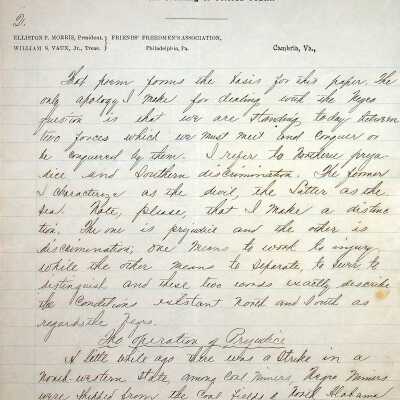 2.
ELLISTON P. MORRIS, President.
WILLIAM S. VAUX, Jr., Treas.
FRIENDS' FREEDMEN'S ASSOCIATION,
Philadelphia, Pa.
Cambria, Va.,
That poem forms the basis for this paper. The
only apology I make for dealing with the Negro
question is that we are standing today between
two forces which we must meet and conquer or
be conquered by them. I refer to Northern preju-
dice and Southern discrimination. The former
I characterize as the devil, the latter as the
sea. Note, please, that I make a distinc-
tion. The one is prejudice and the other is
discrimination; one means to work to injury
while the other means to separate, to
distinguish and these two words exactly describe
the conditions existant North and South as
regards the Negro.
The Operation of Prejudice
A little while ago there was a strike in a
North-western State, among Coal Miners. Negro Miners
were shipped from the Coal fields North Alabama